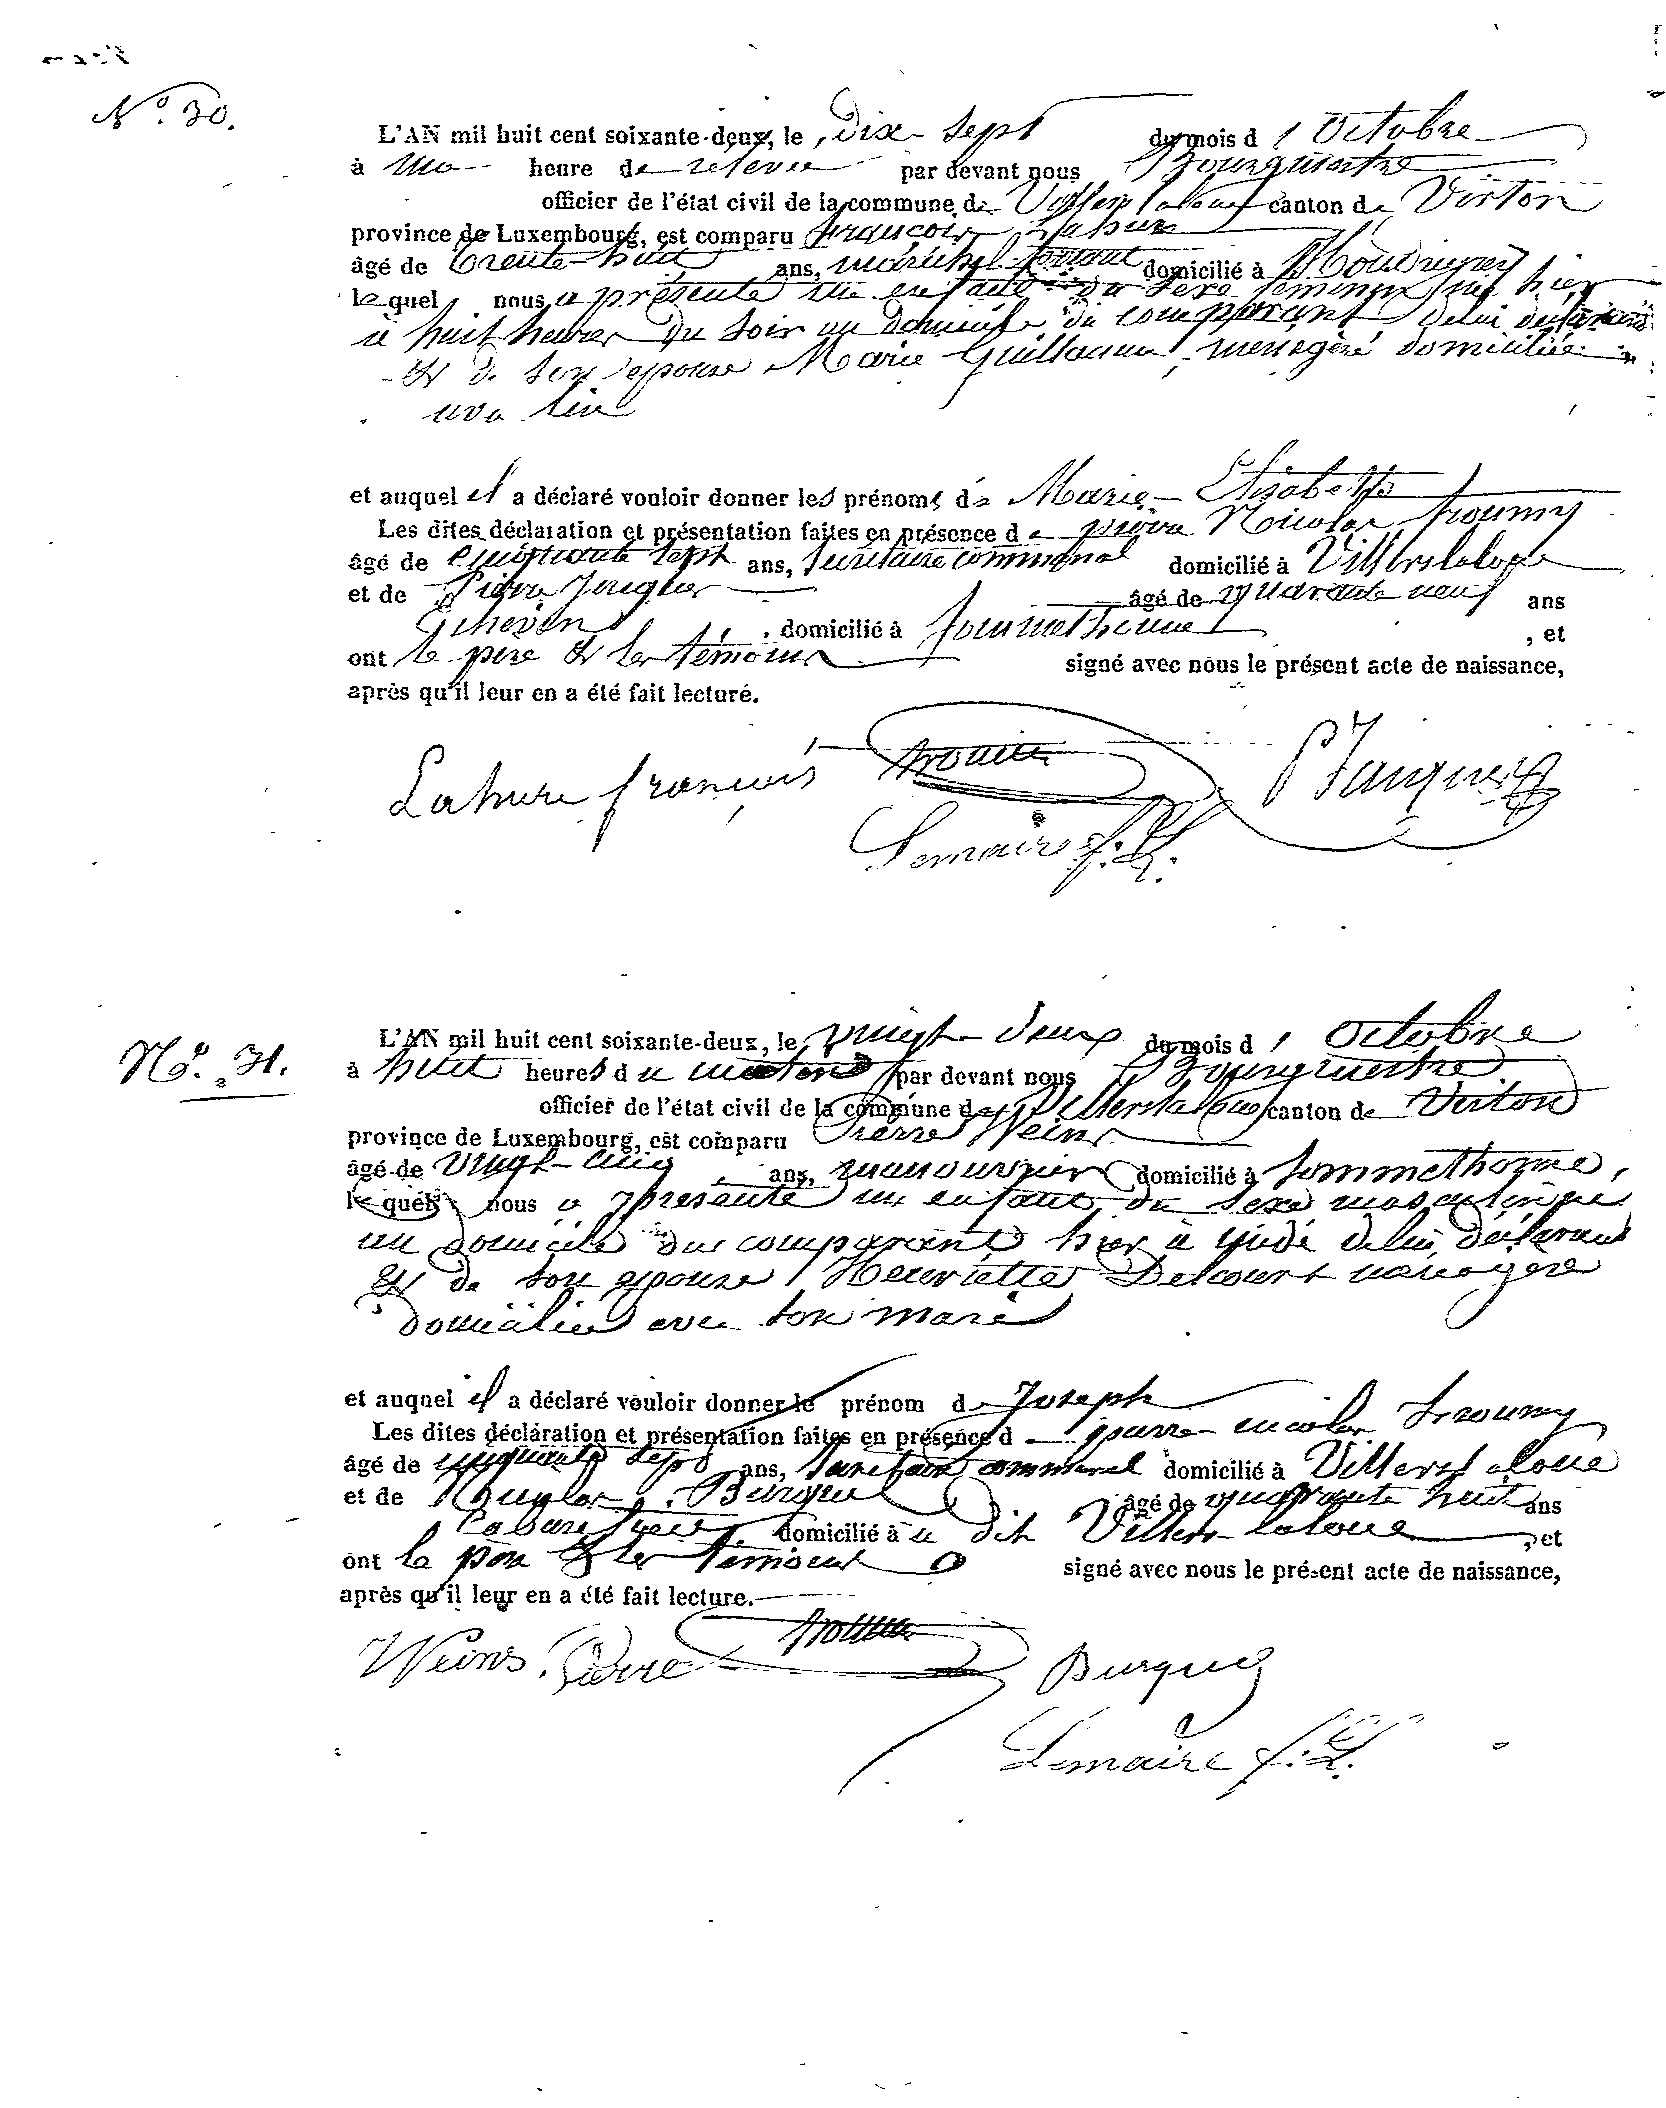 N.° 30.
L'AN mil huit cent soixante-deux, le Dix-Sept du mois d'Octobre
à une heure de relevée par devant nous Bourgmestre
officier de l'état civil de la commune de Villers laloue canton de Virton
province de Luxembourg, est comparu François Lahure
âgé de trente-huit ans, maréchal ferrant domicilié à
lequel nous a présenté un enfant du sexe féminin né hier
à huit heures du soir au domicile du comparant de lui déclarant
& de son épouse Marie Guillaume, ménagère domiciliée
avec lui
et auquel il a déclaré vouloir donner les prénoms de Marie-Elisabeth
Les dites déclaration et présentation faites en présence de pierre Nicolas
âgé de cinquante sept ans, secrétaire communal domicilié à Villerslaloue
et de Pierre Jacques âgé de quarante neuf ans
Echevin, domicilié à Sommethonne, et
ont le père & les témoins signé avec nous le présent acte de naissance,
après qu'il leur en a été fait lecture.
Lahure françois
PJacques
Lemaire f.
N°. 31.
L'AN mil huit cent soixante-deux, le vingt-deux du mois d'Octobre
à huit heures du matin par devant nous Bourgmestre
officier de l'état civil de la commune de Villerslaloue canton de Virton
province de Luxembourg, est comparu Pierre Weins
âgé de vingt-cinq ans, manouvrier domicilié à Sommethonne,
lequel nous a présenté un enfant du sexe masculin né
au domicile du comparant hier à midi de lui déclarant
& de son épouse Henriette Delcourt ménagère
domiciliée avec son mari
et auquel il a déclaré vouloir donner le prénom de Joseph
Les dites déclaration et présentation faites en présence de pierre nicolas
âgé de cinquante sept ans, secrétaire communal domicilié à Villers laloue
et de Burquel âgé de quarante huit ans
Cabaretier, domicilié à u dit Villers laloue, et
ont le père & les témoins signé avec nous le présent acte de naissance,
après qu'il leur en a été fait lecture.
Weins Pierre
Lemaire f.